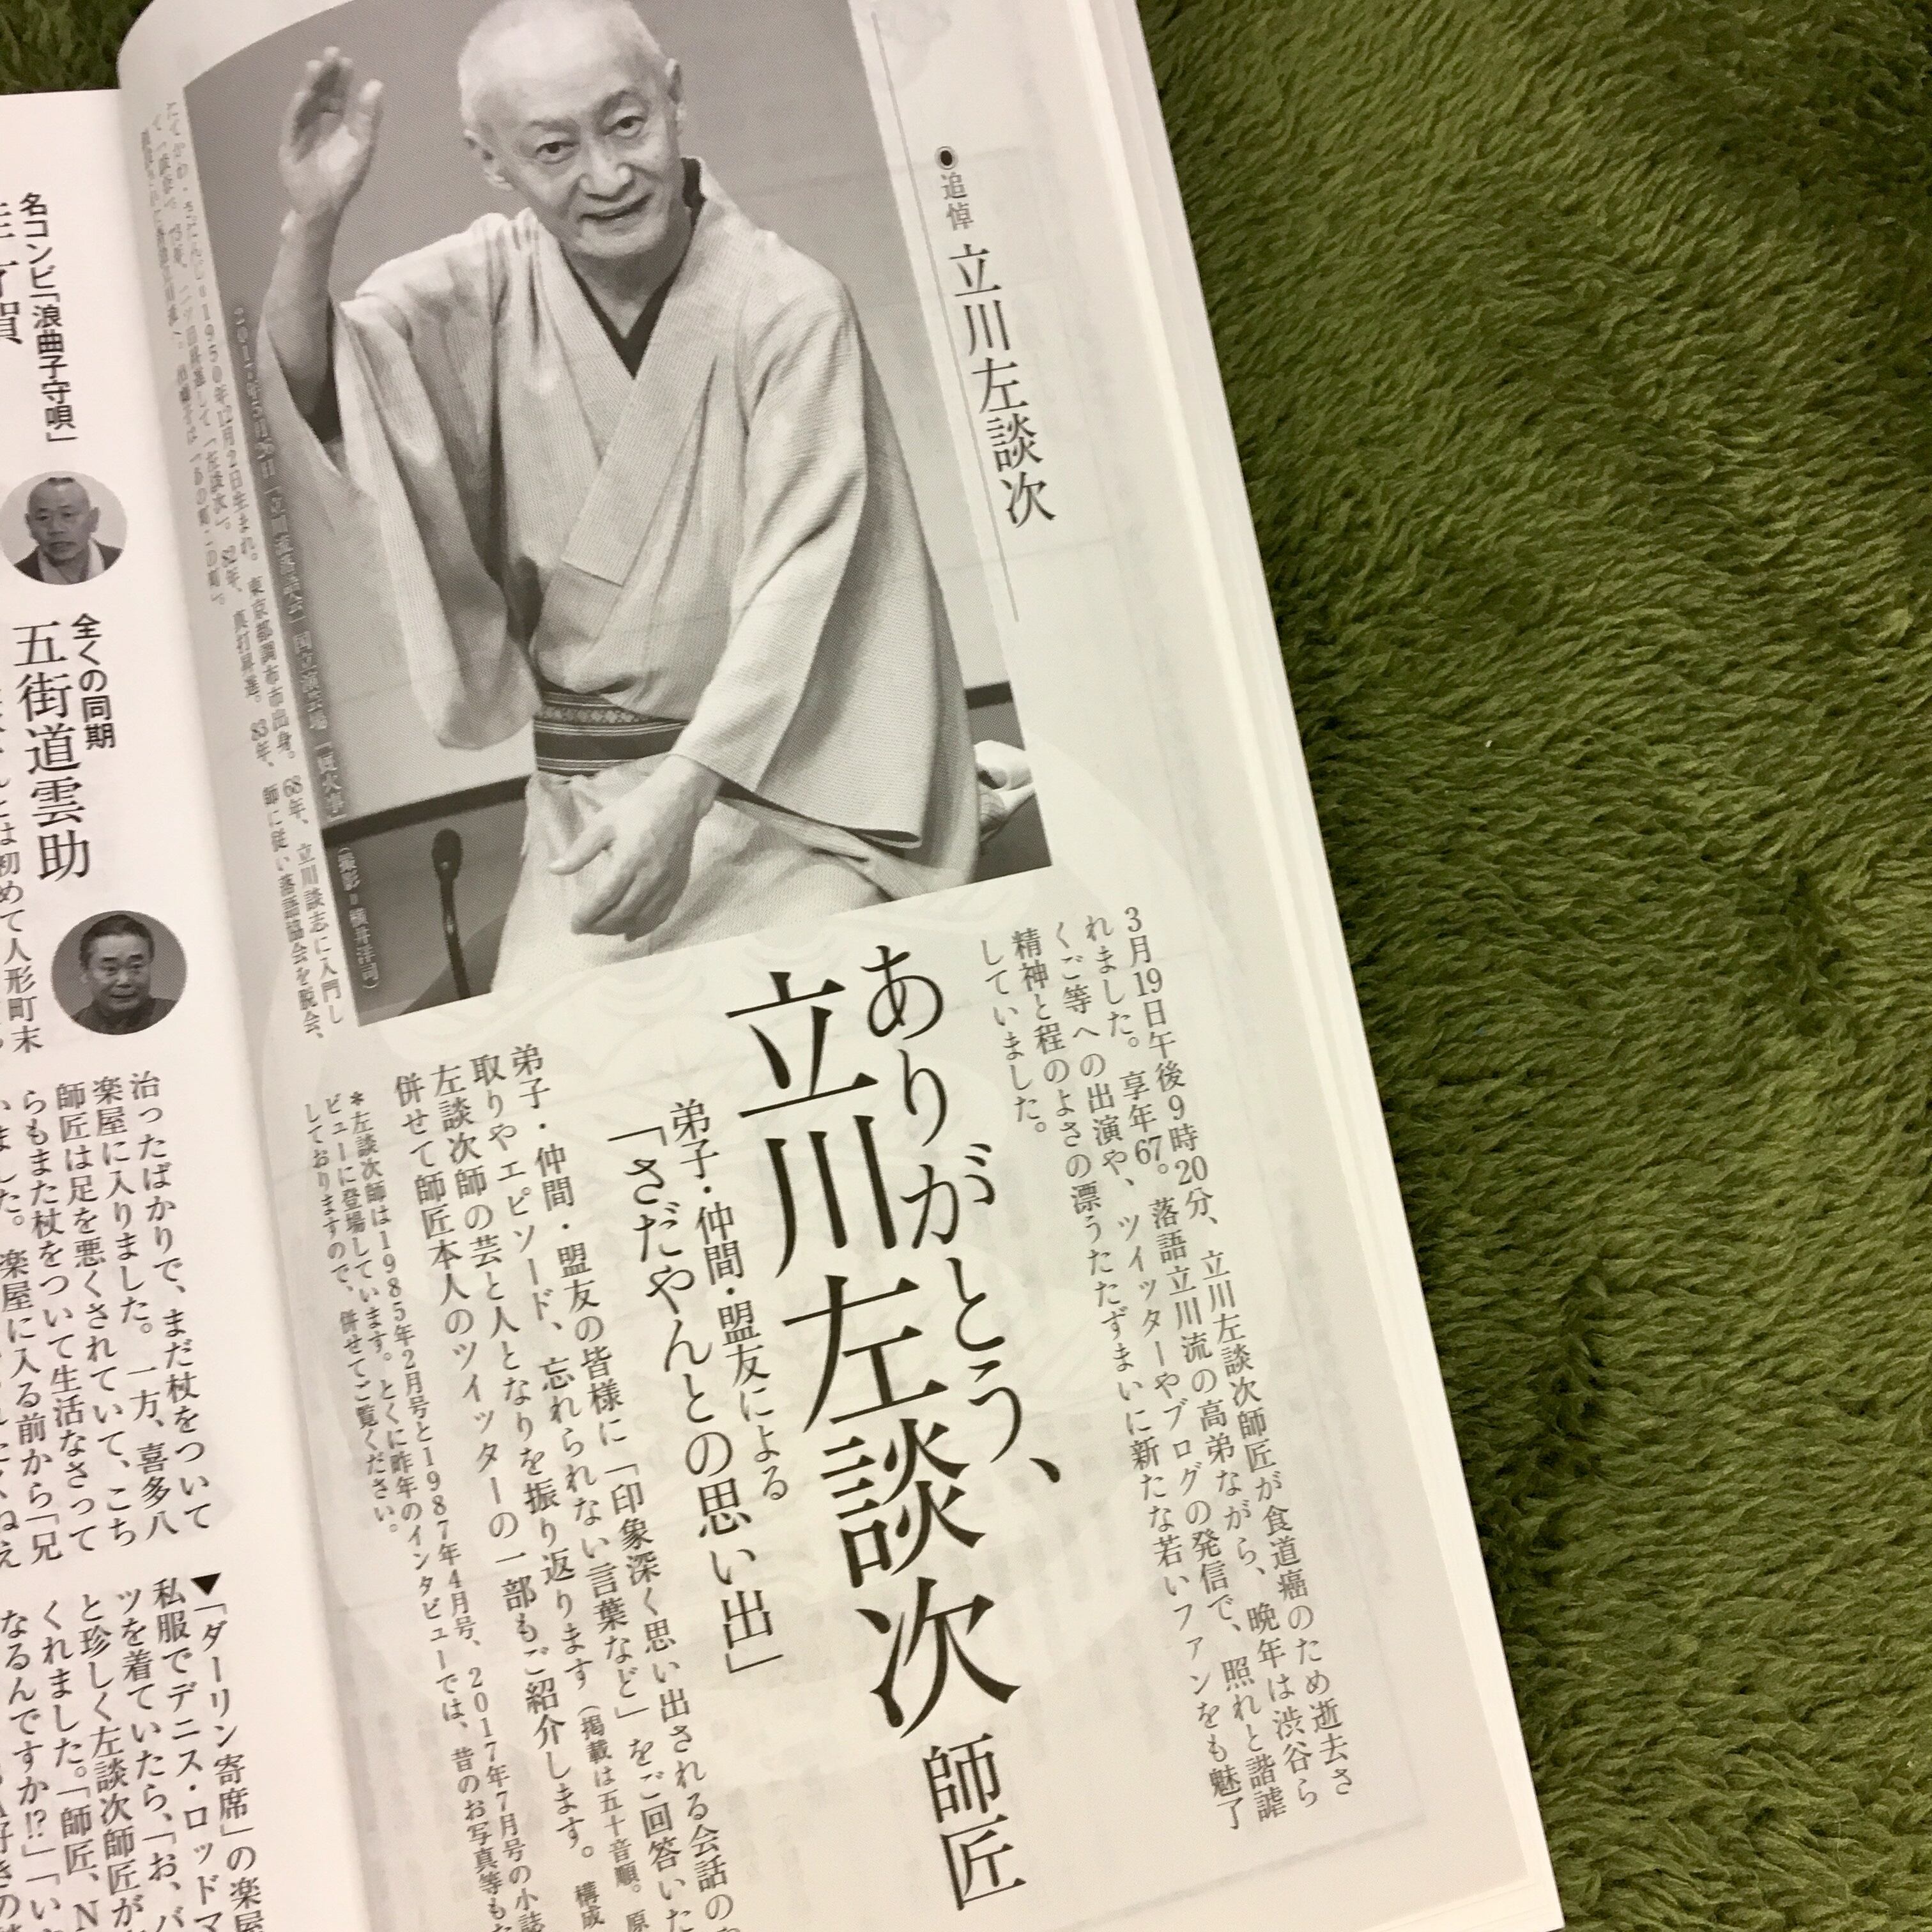 ●追悼 立川左談次
3月19日午後9時20分、立川左談次師匠が食道癌のため逝去さ
れました。享年67。落語立川流の高弟ながら、晩年は渋谷ら
くご等への出演や、ツイッターやブログの発信で、照れと諧謔
精神と程のよさの漂うたたずまいに新たな若いファンをも魅了
していました。
ありがとう、
立川左談次 師匠
弟子・仲間・盟友による
「さだやんとの思い出」
弟子・仲間・盟友の皆様に「印象深く思い出される会話の
取りやエピソード、忘れられない言葉など」をご回答いた
左談次師の芸と人となりを振り返ります（掲載は五十音順。原
併せて師匠本人のツイッターの一部もご紹介します。 構成
*左談次師は1985年2月号と1987年4月号、2017年7月号の小誌
ビューに登場しています。とくに昨年のインタビューでは、昔のお写真等も
しておりますので、併せてご覧ください。
2017年5月26日「立川流落語会」国立演芸場
（撮影=横井洋司）
1950年12月2日生まれ。東京都調布市出身。68年、立川談志に入門し
82年、真打昇進。83年、師に従い落語協会を脱会、
名コンビ「浪曲子守唄」
全くの同期
五街道雲助
は初めて人形町末
治ったばかりで、まだ杖をついて
楽屋に入りました。一方、喜多八
師匠は足を悪くされていて、こち
らもまた杖をついて生活なさって
いました。楽屋に入る前から「兄
▼「ダーリン寄席」の楽屋
私服でデニス・ロッドマ
ツを着ていたら、「お、バ
と珍しく左談次師匠が
くれました。「師匠、N
なるんですか!?」「い